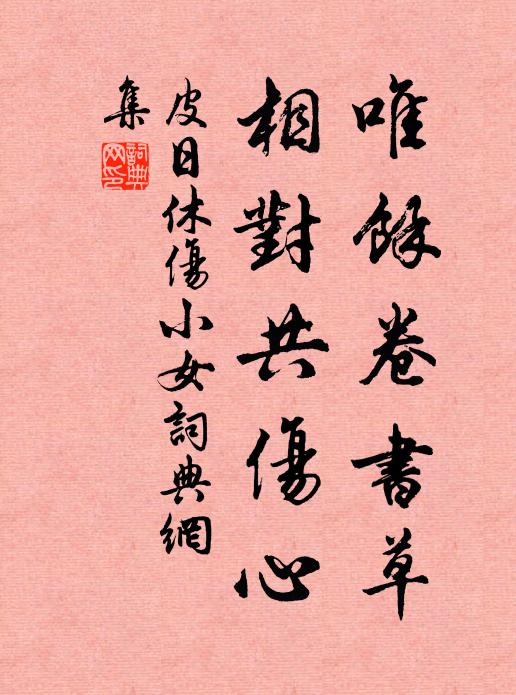 唯餘卷書草
相對共傷心
皮日休傷小女詞典網
集
詞典
网印